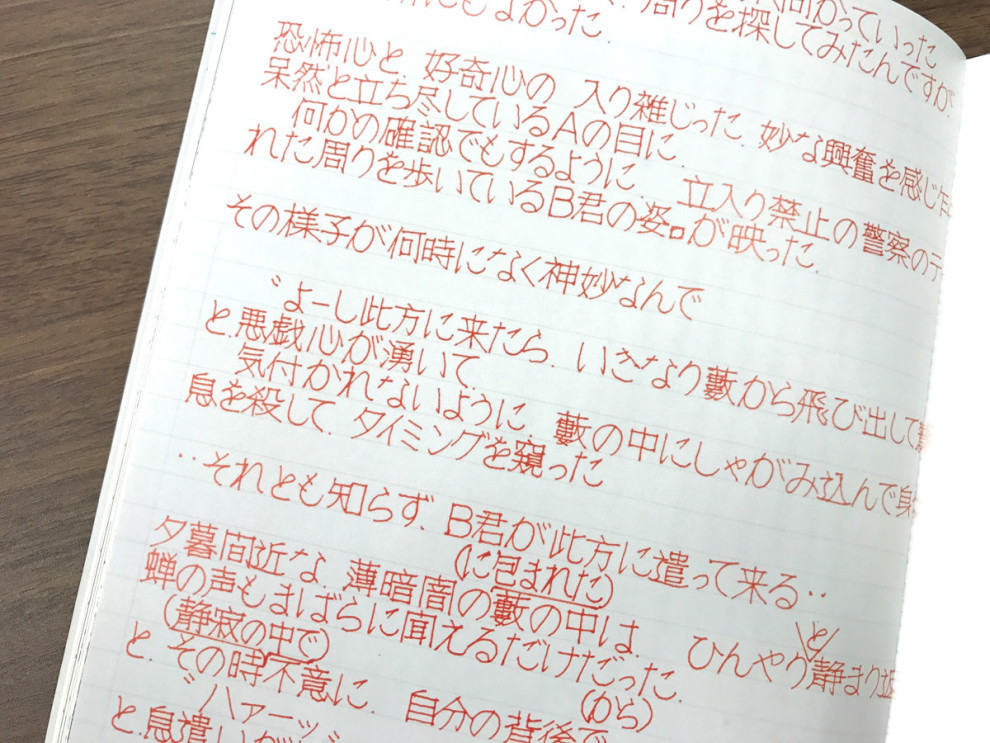 向かっていった
にもよかった 周りを探してみたんですが、
恐怖心と 好奇心の 入り雑じった、妙な興奮を感じ乍
呆然と立ち尽しているAの目に、
何かの確認でもするように、 立入り禁止の警察のテ
れた周りを歩いているB君の姿が映った、
その様子が何時になく神妙なんで
〝よーし此方に来たら、いきなり藪から飛び出して
と、悪戯心が湧いて、
気付かれないように、藪の中にしゃがみ込んで身
息を殺して、タイミングを窺った
‥それとも知らず、B君が此方に遣って来る‥
夕暮間近な、薄暗闇(に包まれた)の藪の中は、 ひんやりと静まり
蝉の声もまばらに聞えるだけだった、
(静寂の中で)
と、その時不意に、 自分の背後で(から)
〝ハァーッ
と、息遣いが